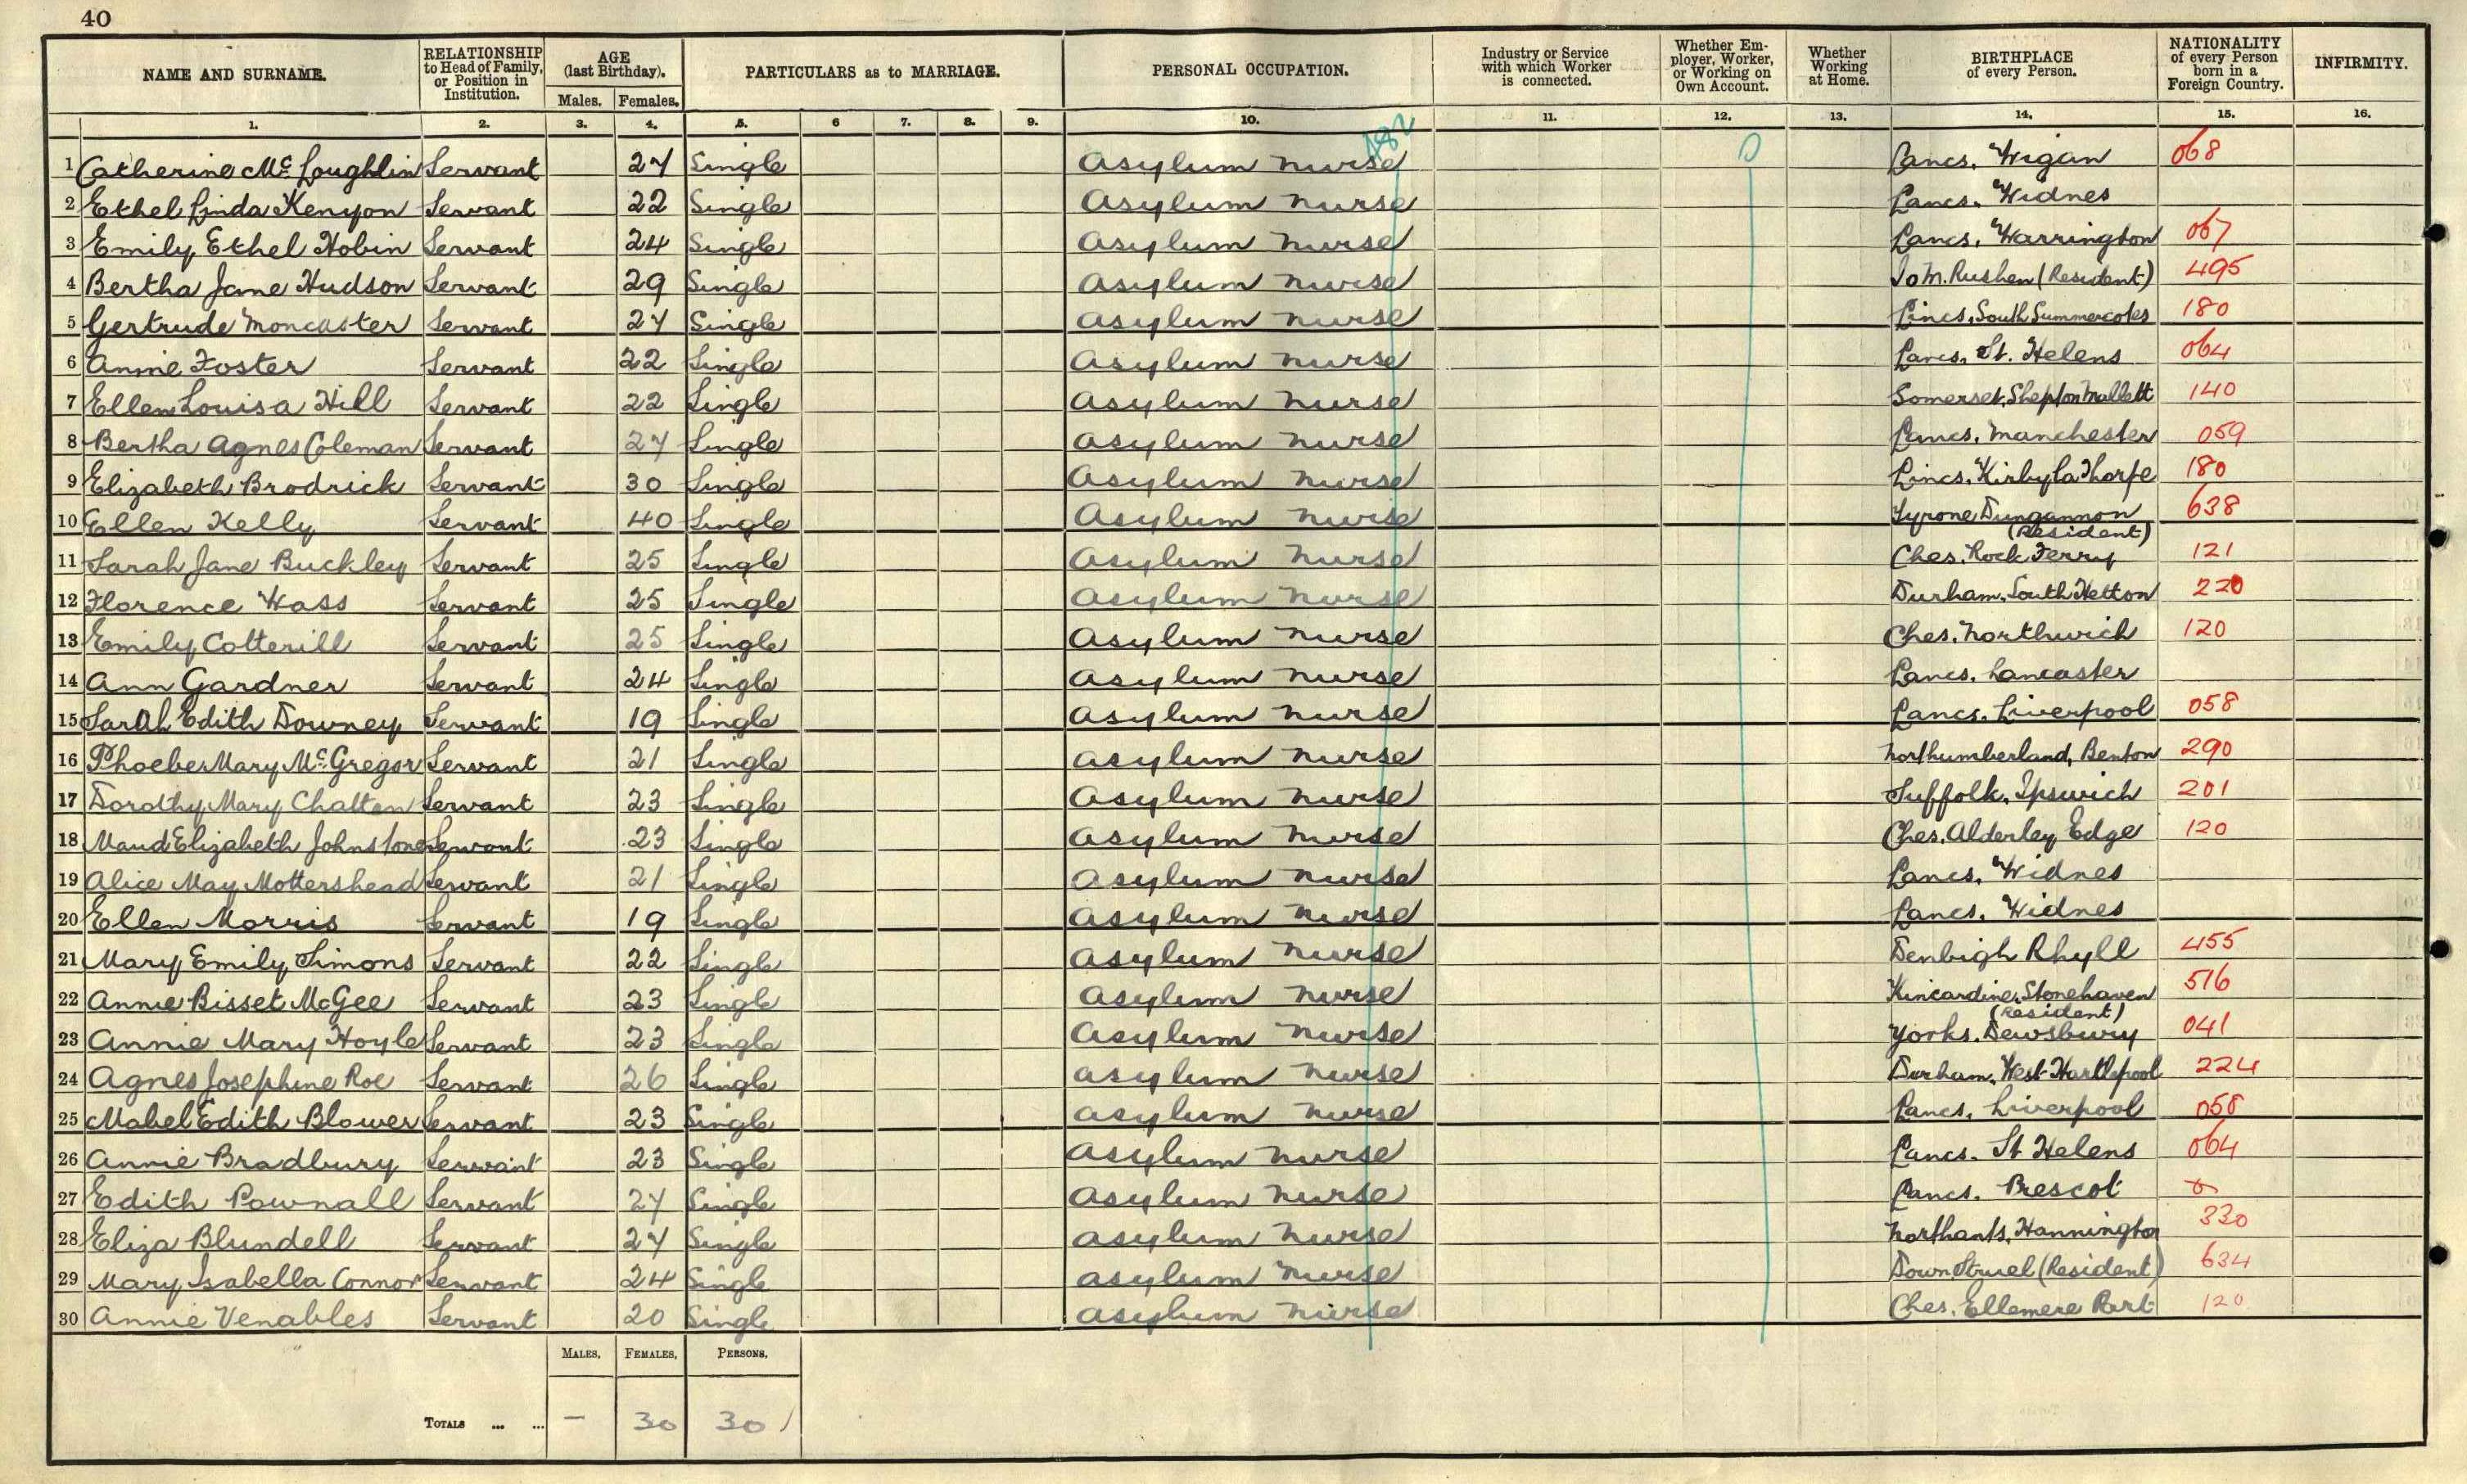 40
NAME AND SURNAME. RELATIONSHIP to Head of Family, or Position in Institution. AGE (last Birthday). Males. Females. PARTICULARS as to MARRIAGE. PERSONAL OCCUPATION. Industry or Service with which Worker is connected. Whether Employer, Worker, or Working on Own Account. Whether Working at Home. BIRTHPLACE of every Person. NATIONALITY of every Person born in a Foreign Country. INFIRMITY.
1. 2. 3. 4. 5. 6 7. 8. 9. 10. 11. 12. 13. 14. 15. 16.
1 Catherine Mc Loughlin Servant 27 Single Asylum Nurse Lancs. Wigan 068
2 Ethel Linda Kenyon Servant 22 Single Asylum Nurse Lancs. Widnes
3 Emily Ethel Hobin Servant 24 Single Asylum Nurse Lancs. Warrington 067
4 Bertha Jane Hudson Servant 29 Single Asylum Nurse IoM. Rushen (Resident) 495
5 Gertrude Moncaster Servant 27 Single Asylum Nurse Lincs. South Summercotes 180
6 Annie Foster Servant 22 Single Asylum Nurse Lancs. St. Helens 064
7 Ellen Louisa Hill Servant 22 Single Asylum Nurse Somerset, Shepton Mallett 140
8 Bertha Agnes Coleman Servant 27 Single Asylum Nurse Lancs. Manchester 059
9 Elizabeth Brodrick Servant 30 Single Asylum Nurse Lincs. Kirby la Thorpe 180
10 Ellen Kelly Servant 40 Single Asylum Nurse Tyrone Dungannon (Resident) 638
11 Sarah Jane Buckley Servant 25 Single Asylum Nurse Ches. Rock Ferry 121
12 Florence Wass Servant 25 Single Asylum Nurse Durham. South Hetton 220
13 Emily Cotterill Servant 25 Single Asylum Nurse Ches. Northwich 120
14 Ann Gardner Servant 24 Single Asylum Nurse Lancs. Lancaster
15 Sarah Edith Downey Servant 19 Single Asylum Nurse Lancs. Liverpool 058
16 Phoebe Mary Mc Gregor Servant 21 Single Asylum Nurse Northumberland, Benton 290
17 Dorothy Mary Chatten Servant 23 Single Asylum Nurse Suffolk. Ipswich 201
18 Maud Elizabeth Johnstone Servant 23 Single Asylum Nurse Ches. Alderley Edge 120
19 Alice May Mottershead Servant 21 Single Asylum Nurse Lancs. Widnes
20 Ellen Morris Servant 19 Single Asylum Nurse Lancs. Widnes
21 Mary Emily Simons Servant 22 Single Asylum Nurse Denbigh Rhyll 455
22 Annie Bisset McGee Servant 23 Single Asylum Nurse Kincardine, Stonehaven (Resident) 516
23 Annie Mary Hoyle Servant 23 Single Asylum Nurse Yorks. Dewsbury 041
24 Agnes Josephine Roe Servant 26 Single Asylum Nurse Durham, West Hartlepool 224
25 Mabel Edith Blower Servant 23 Single Asylum Nurse Lancs. Liverpool 058
26 Annie Bradbury Servant 23 Single Asylum Nurse Lancs. St Helens 064
27 Edith Pownall Servant 27 Single Asylum Nurse Lancs. Prescot
28 Eliza Blundell Servant 27 Single Asylum Nurse Northants, Hannington 330
29 Mary Isabella Connor Servant 24 Single Asylum Nurse Down Struel (Resident) 634
30 Annie Venables Servant 20 Single Asylum Nurse Ches. Ellemere Port 120
MALES. FEMALES. PERSONS.
TOTALS ... ... – 30 30